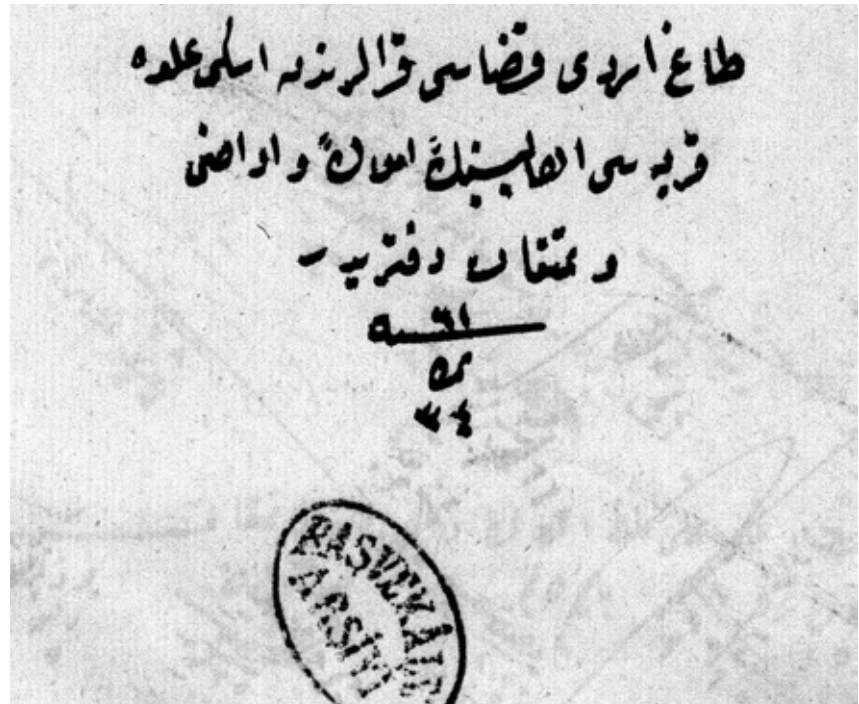 طاغ اردى قضاسى قرالرندن اسكى علوه
قريه سى اهاليسينك املاك و اراضى
و تمتعات دفتريدر
نمره
٣٤
BAŞVEKÂLET
ARŞİVİ